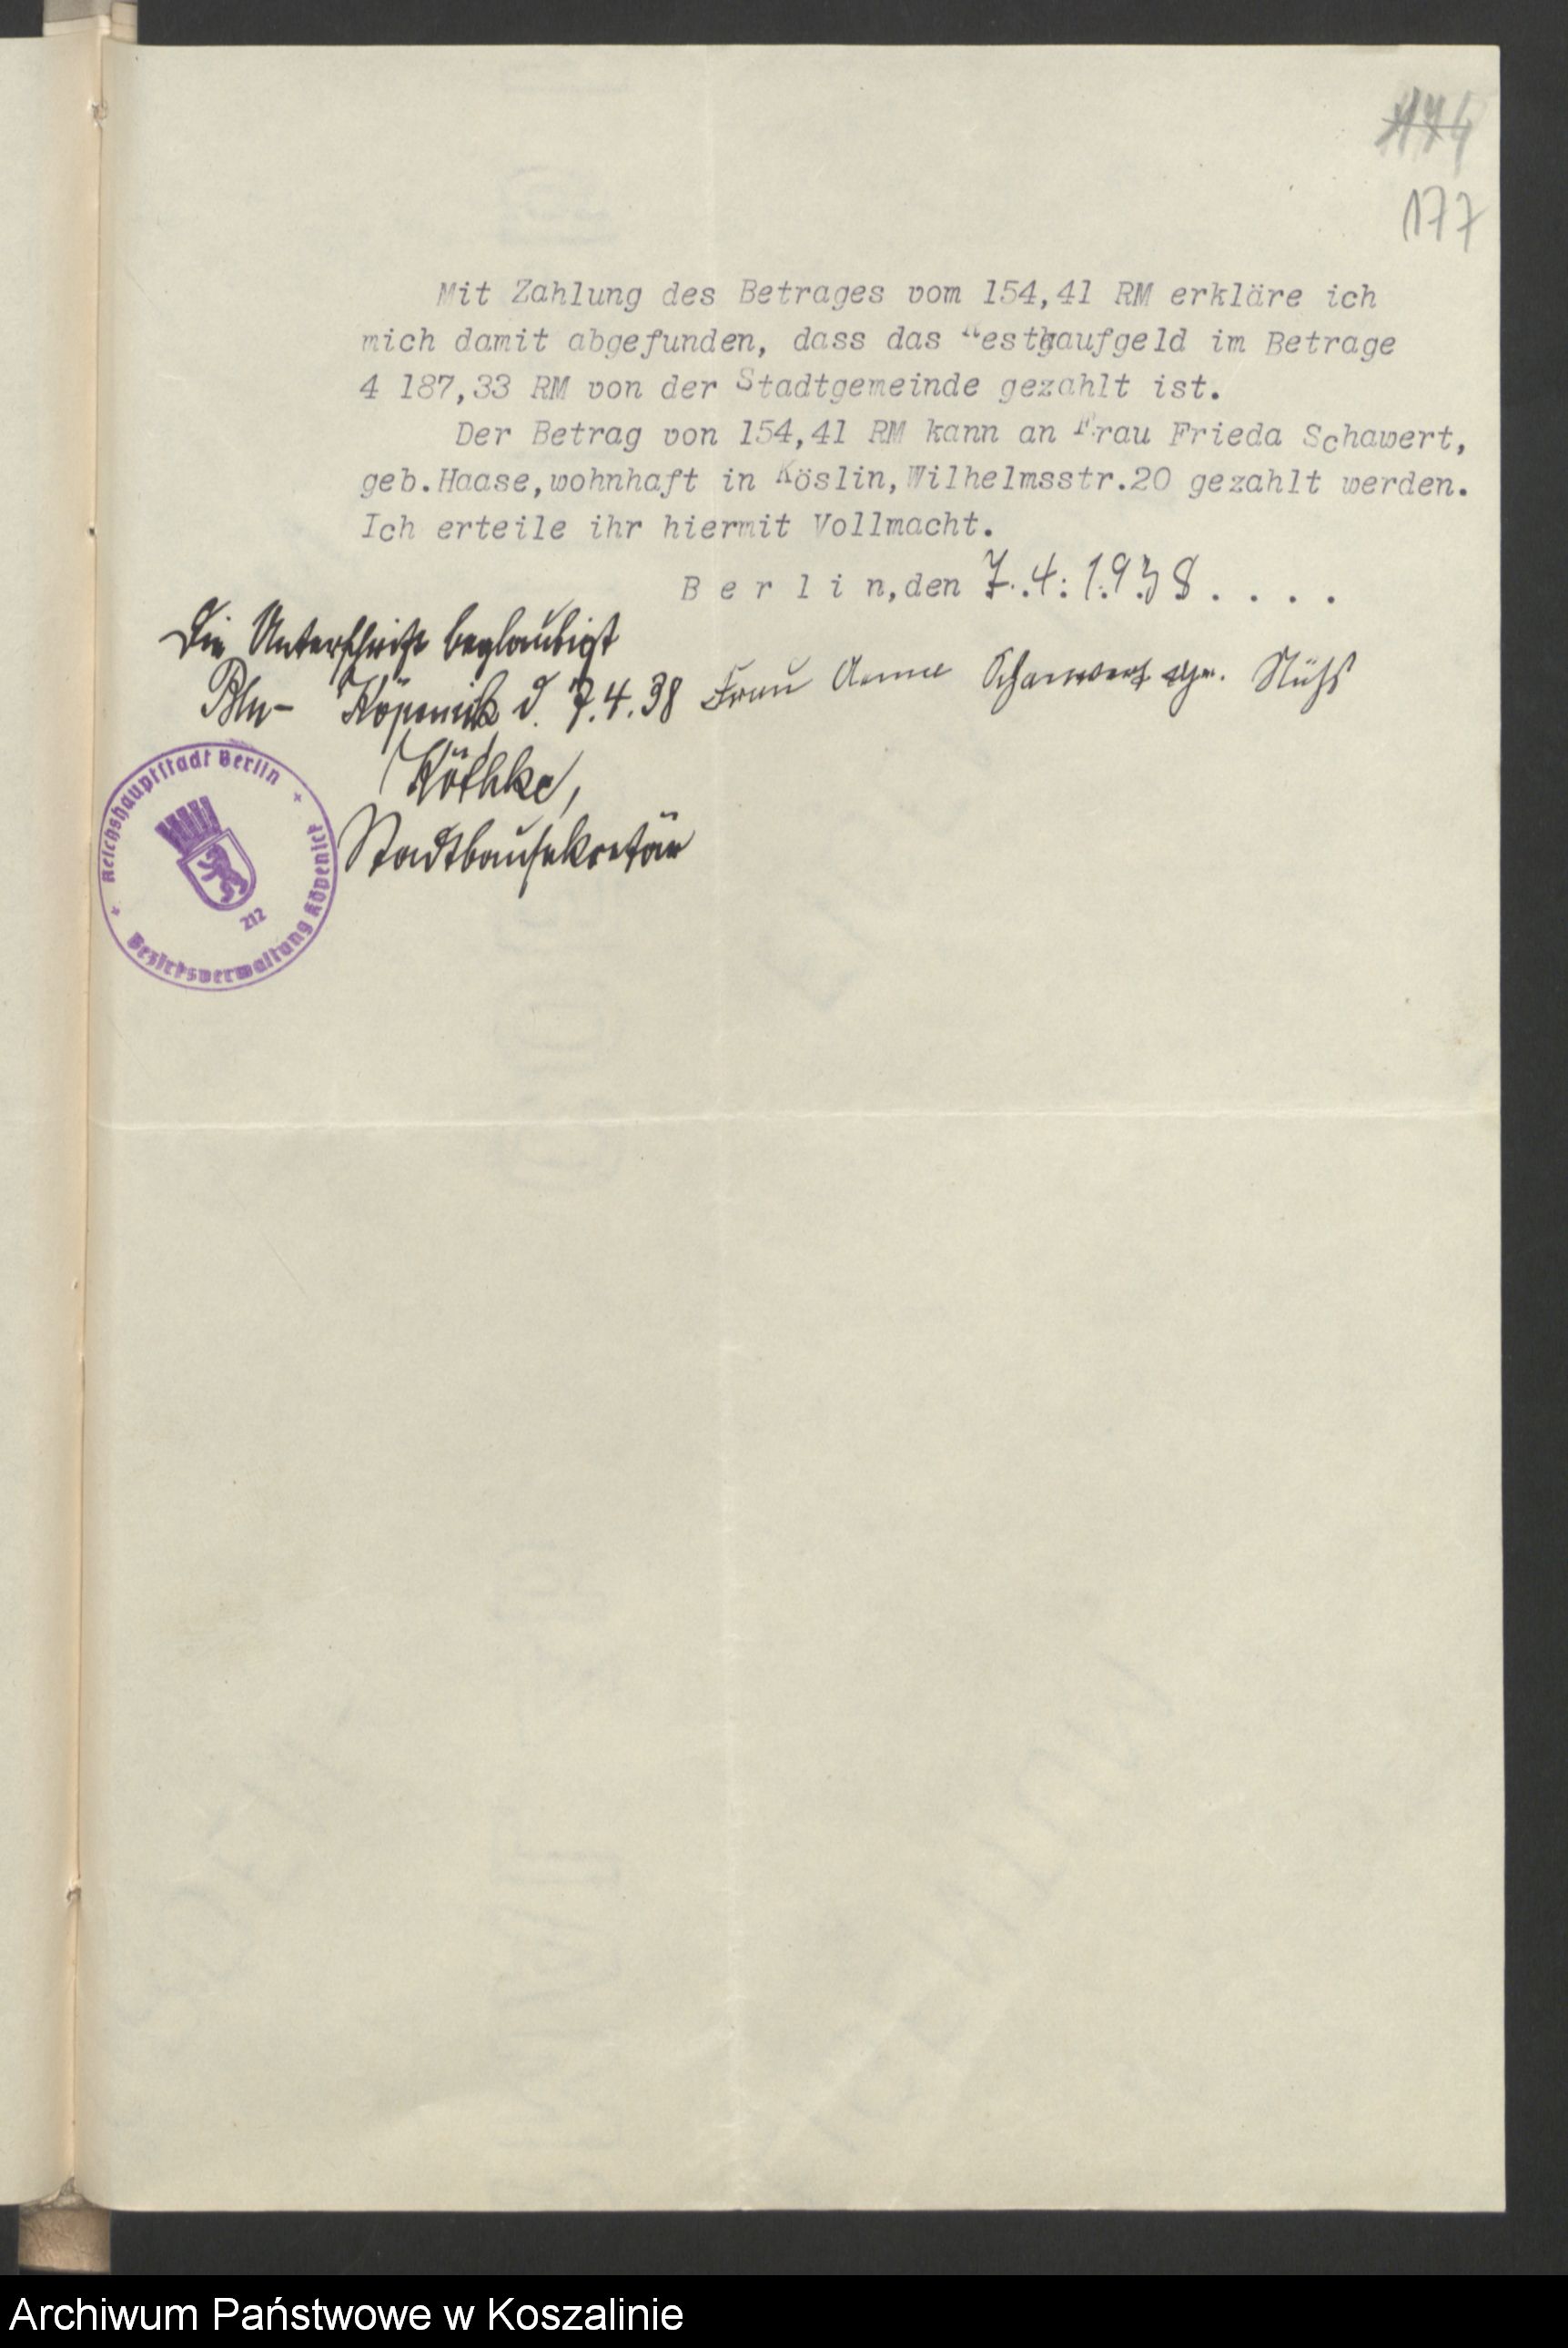 174
177
Mit Zahlung des Betrages vom 154,41 RM erkläre ich
mich damit abgefunden, dass das Restkaufgeld im Betrage
4 187,33 RM von der Stadtgemeinde gezahlt ist.
Der Betrag von 154,41 RM kann an Frau Frieda Schawert,
geb.Haase,wohnhaft in Köslin,Wilhelmsstr.20 gezahlt werden.
Ich erteile ihr hiermit Vollmacht.
B e r l i n,den 7.4.1938 . . . .
Die Unterschrift beglaubigt
Frau Anna
Bln- Köpenick d. 7.4.38
Köthke,
Stadtbausekretär
Reichshauptstadt Berlin
Bezirksverwaltung Köpenick
212
Archiwum Państwowe w Koszalinie